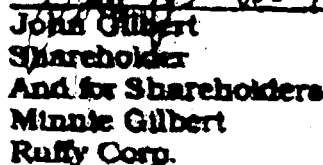 John Gilbert
Shareholder
And for Shareholders
Minnie Gilbert
Ruffy Corp.